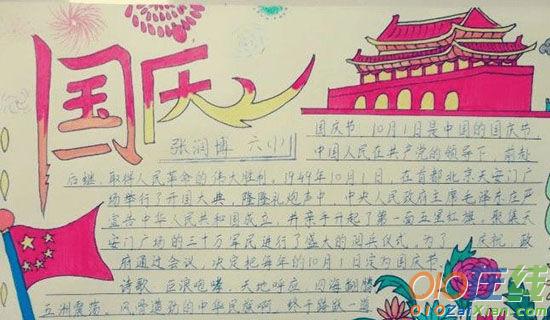 国庆
张润博 六(1)
国庆节,10月1日是中国的国庆节,
中国人民在共产党的领导下,前赴
后继,取得人民革命的伟大胜利,1949年10月1日,在首都北京天安门广
场举行了开国大典,隆隆礼炮声中,中央人民政府主席毛泽东庄严
宣告中华人民共和国成立,并亲手升起了第一面五星红旗,聚集天
安门广场的三十万军民进行了盛大的阅兵仪式,为了 庆祝,政
府通过会议 决定把每年的10月1日定为国庆节
诗歌 巨浪咆哮,天地呼应 四海翻腾
五洲震荡,风雪造就的中华民族啊 终于
在线
ZaiXian.com